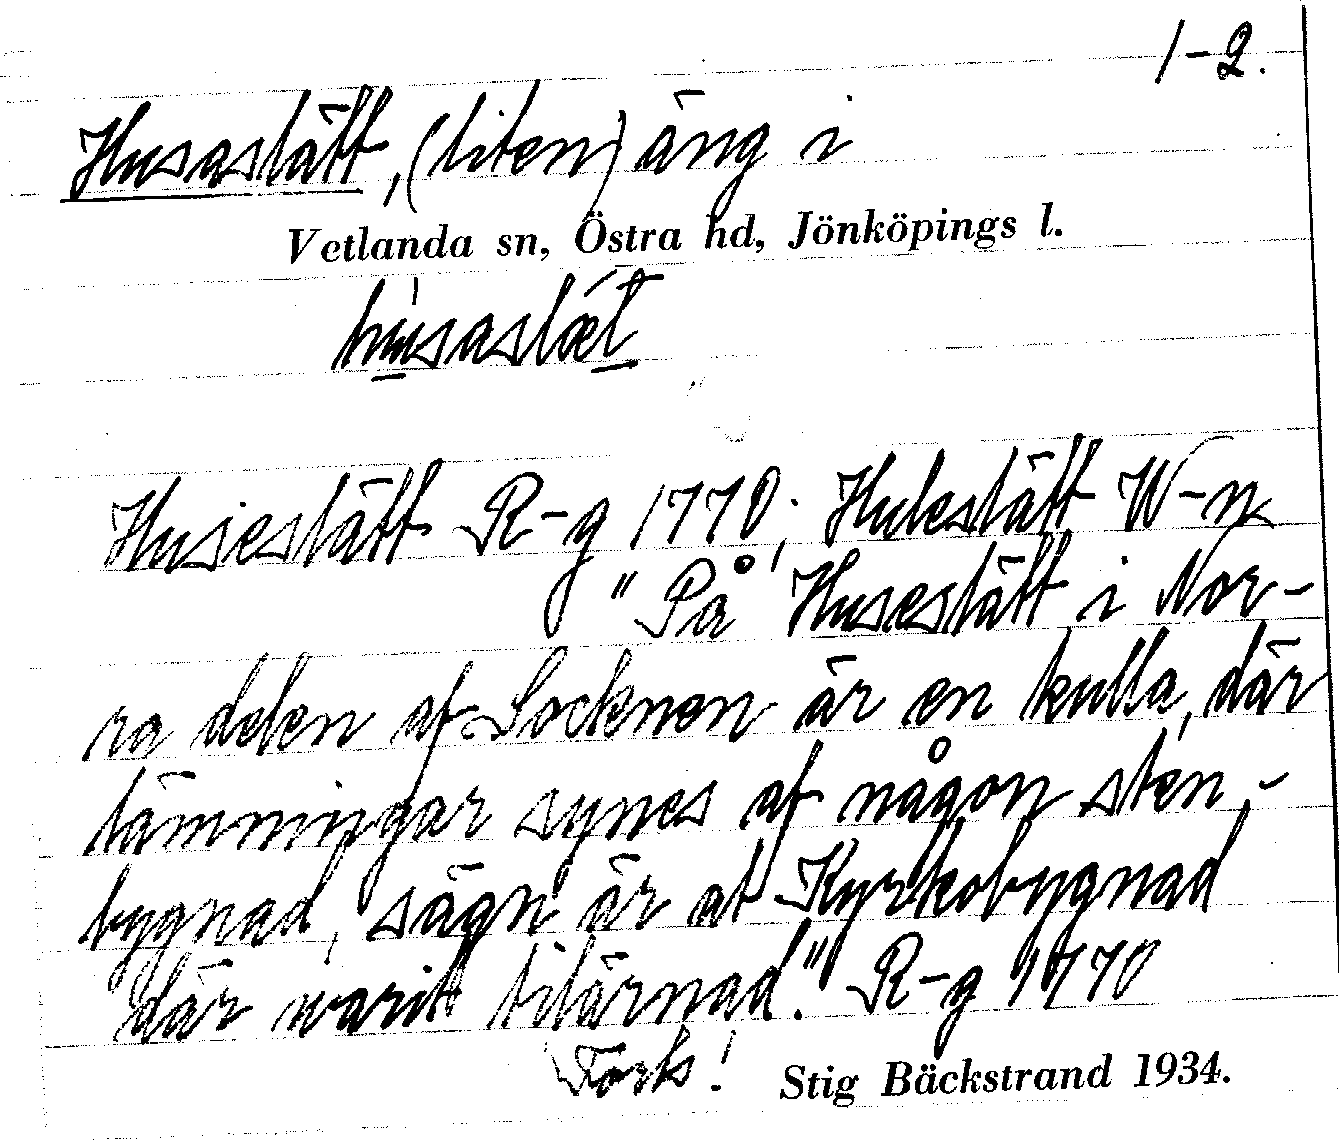 1-2.
Husaslätt, (liten) äng i
Vetlanda sn, Östra hd, Jönköpings l.
husaslæt
Huseslätt R-g 1770; Huleslätt W-n
"På Huseslätt i Nor-
ra delen af Socknen är en kulla, där
lämningar synes af någon sten,-
bygnad, sägn är at Kyrkobygnad
där warit tilärnad." R-g 1770
Fork! Stig Bäckstrand 1934.